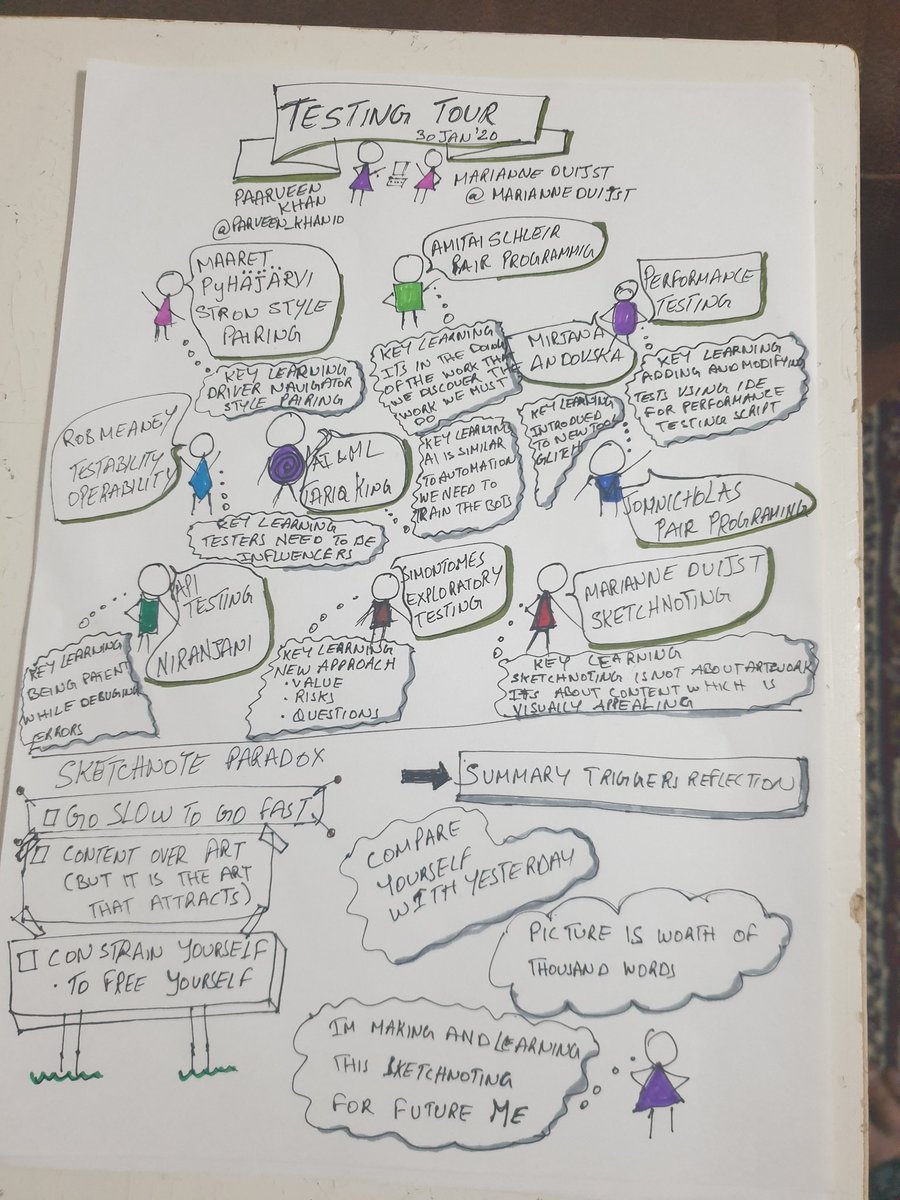 TESTING TOUR
30 JAN'20
PAARVEEN
KHAN
@PARVEEN_KHAN10
MARIANNE DUIJST
@ MARIANNEDUIJST
MAARET
PYHÄJÄRVI
STRON STYLE
PAIRING
KEY LEARNING
DRIVER NAVIGATOR
STYLE PAIRING
AMITAI SCHLEIR
PAIR PROGRAMMIG
KEY LEARNING
ITS IN THE DOING
OF THE WORK THAT
WE DISCOVER THE
WORK WE MUST
DO
PERFORMANCE
TESTING
MIRJANA
ANDOVSKA
KEY LEARNING
ADDING AND MODIFYING
TESTS USING IDE
FOR PERFORMANCE
TESTING SCRIPT
ROB MEANEY
TESTABILITY
OPERABILITY
KEY LEARNING
TESTERS NEED TO BE
INFLUENCERS
AI & ML
TARIQ KING
KEY LEARNING
AI IS SIMILAR
TO AUTOMATION
WE NEED TO
TRAIN THE BOTS
KEY LEARNING
INTRODUED
TO NEW TOOL
GLITCH
JOMNICHOLAS
PAIR PROGRAMING
API
TESTING
NIRANJANI
KEY LEARNING
BEING PATENT
WHILE DEBUGING
ERRORS
SIMONTOMES
EXPLORATORY
TESTING
KEY LEARNING
NEW APPROACH
· VALUE
· RISKS
· QUESTIONS
MARIANNE DUIJST
SKETCHNOTING
KEY LEARNING
SKETCHNOTING IS NOT ABOUT ARTWORK
ITS ABOUT CONTENT WHICH IS
VISUALLY APPEALING
SKETCHNOTE PARADOX
GO SLOW TO GO FAST
CONTENT OVER ART
(BUT IT IS THE ART
THAT ATTRACTS)
CONSTRAIN YOURSELF
· TO FREE YOURSELF
SUMMARY TRIGGERS REFLECTION
COMPARE
YOURSELF
WITH YESTERDAY
PICTURE IS WORTH OF
THOUSAND WORDS
IM MAKING AND LEARNING
THIS SKETCHNOTING
FOR FUTURE ME